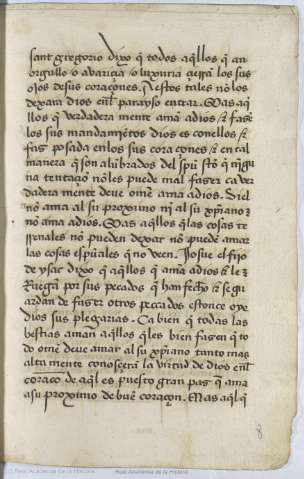 sant gregorio dixo q̃ todos aq̃llos q̃ an
orgullo o avariçia o luxuria çierrã los sus
ojos de sus coraçones. Destos tales no los
dexara dios enl̃ parayso entrar. Mas aq̃
llos q̃ verdadera mente amã a dios & fasẽ
los sus mandamiẽtos dios es con ellos &
fas posada en los sus coraçones & en tal
manera q̃ son alũbrados del spũ stõ q̃ nigũ
na tentaçiõ no les puede mal faser ca ver
dadera mente deve omẽ ama a dios. Si el
nõ ama al su proximo ni al su xp̃iano &
nõ ama a dios. Mas aq̃llos q̃ las cosas te
rrenales nõ pueden dexar nõ puedẽ amar
las cosas esp̃uales q̃ no veen. Josue el fijo
de ysac dixo q̃ aq̃llos q̃ amã a dios & le
Ruegã por sus pecados q̃ han fecho & se gu
ardan de faser otros pecados estonce oye
dios sus plegarias. Ca bien q̃ todas las
bestias aman aq̃llos q̃ les bien fasen q̃ to
do omẽ deve amar al su xp̃iano tanto mas
alta mente conosçerã la virtud de dios enl̃
coraçõ de aq̃l es puesto gran pas q̃ ama
a su proximo de buẽ coraçon. Mas aq̃l q̃
8
Real Academia de la Historia